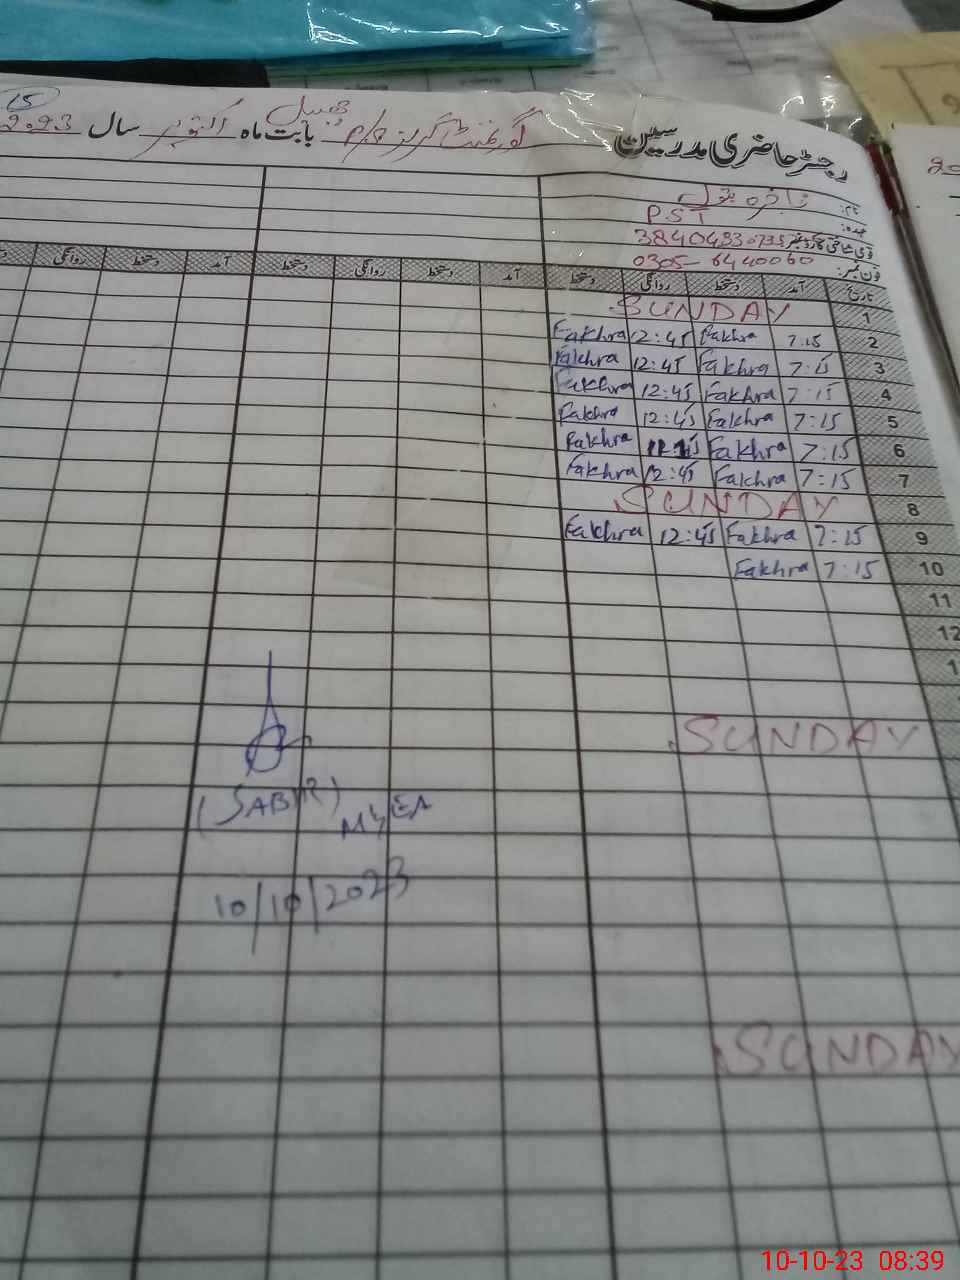 15
رجسٹر حاضری مدرسین گورنمنٹ گرلز p/s بابت ماہ اکتوبر سال 2023
نام:
عہدہ: P.S.T
قومی شناختی کارڈ نمبر
فون نمبر: 0305-6440060
تاریخ آمد دستخط روانگی دستخط آمد دستخط روانگی دستخط آمد دستخط روانگی
1 SUNDAY
2 7:15 Fakhra 12:45 Fakhra
3 7:15 Fakhra 12:45 Fakhra
4 7:15 Fakhra 12:45 Fakhra
5 7:15 Fakhra 12:45 Fakhra
6 7:15 Fakhra 12:45 Fakhra
7 7:15 Fakhra 12:45 Fakhra
8 SUNDAY
9 7:15 Fakhra 12:45 Fakhra
10 7:15 Fakhra
11
12
SUNDAY
(SABIR)
MEA
10/10/2023
SUNDAY
10-10-23 08:39